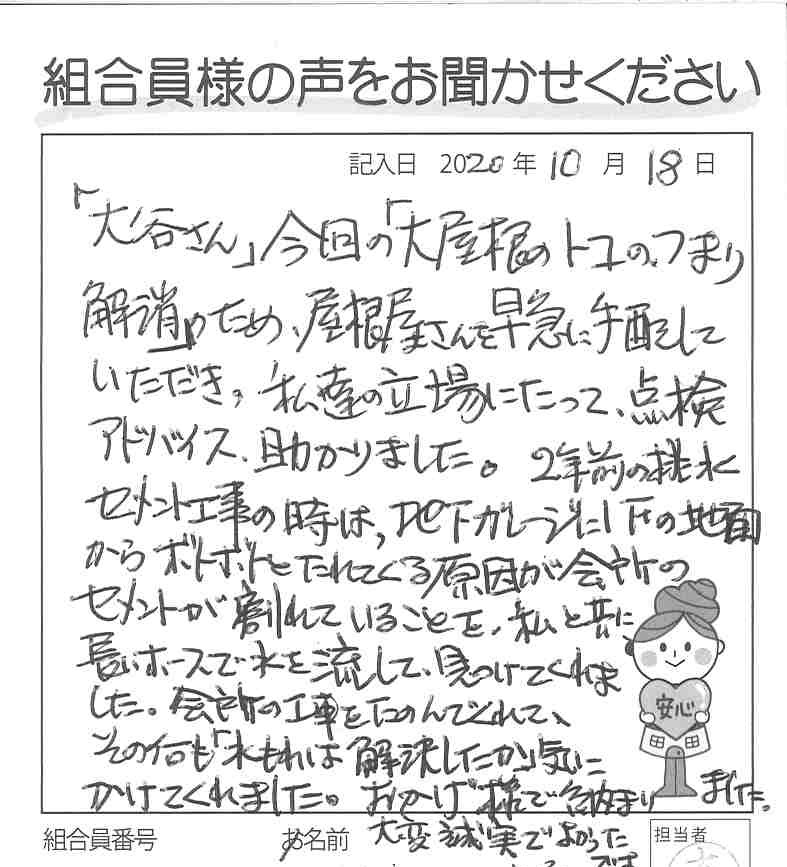 組合員様の声をお聞かせください
記入日 2020年10月18日
「大谷さん」今回の「大屋根のトユのつまり
解消」のため、屋根屋さんを早急に手配して
いただき、私達の立場にたって、点検
アドバイス、助かりました。2年前の排水
セメント工事の時は、地下ガレージに1Fの地面
からボトボトとたれてくる原因が会所の
セメントが割れていることを、私と共に、
長いホースで水を流して、見つけてくれま
した。会所の工事をたのんでくれて、
その何も「水もれは解決したか」気に
かけてくれました。おかげ様で納まりました。
安心
組合員番号
お名前
大変誠実でよかった
です
担当者